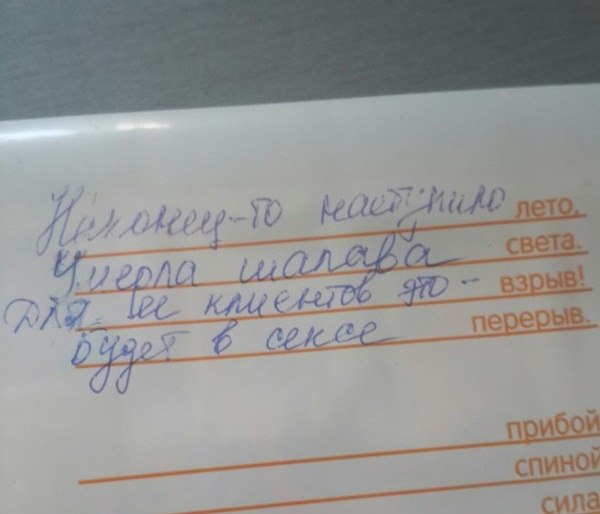 Наконец-то наступило лето,
Умерла шалава света.
Для ее клиентов это - взрыв!
Будет в сексе перерыв.
прибой
спиной
сила